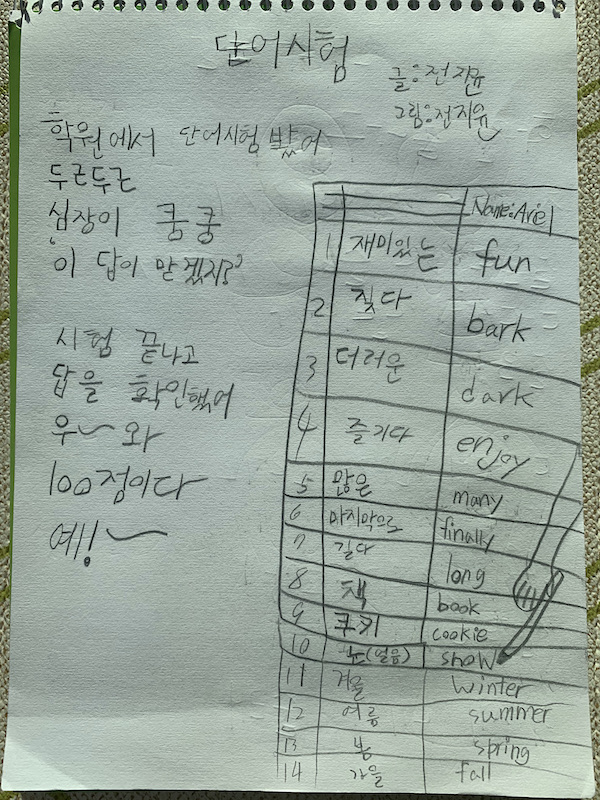 단어시험
글:전지윤
그림:전지윤
학원에서 단어시험 봤어
두근두근
심장이 쿵쿵
'이 답이 맞겠지?'
시험 끝나고
답을 확인했어
우~와
100점이다
예!~
Name:Ariel
1 재미있는 fun
2 짖다 bark
3 더러운 dark
4 즐기다 enjoy
5 많은 many
6 마지막으로 finally
7 길다 long
8 책 book
9 쿠키 cookie
10 눈(얼음) snow
11 겨울 winter
12 여름 summer
13 봄 spring
14 가을 fall